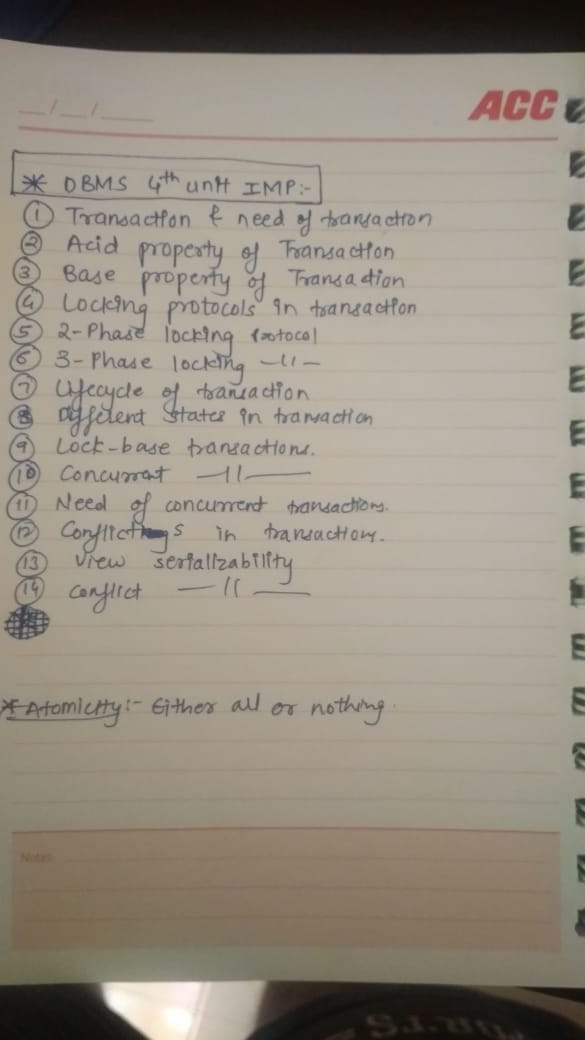 ACC
__/__/____
* DBMS 4th unit IMP:-
① Transaction & need of transaction
② Acid property of Transaction
③ Base property of Transaction
④ Locking protocols in transaction
⑤ 2-Phase locking Protocol
⑥ 3-Phase locking —〃—
⑦ Lifecycle of transaction
⑧ Different states in transaction
⑨ Lock-base transactions.
⑩ Concurrent —〃—
⑪ Need of concurrent transactions.
⑫ Conflicts in transactions.
⑬ View serializability
⑭ Conflict —〃—
* Atomicity:- Either all or nothing.
Notes